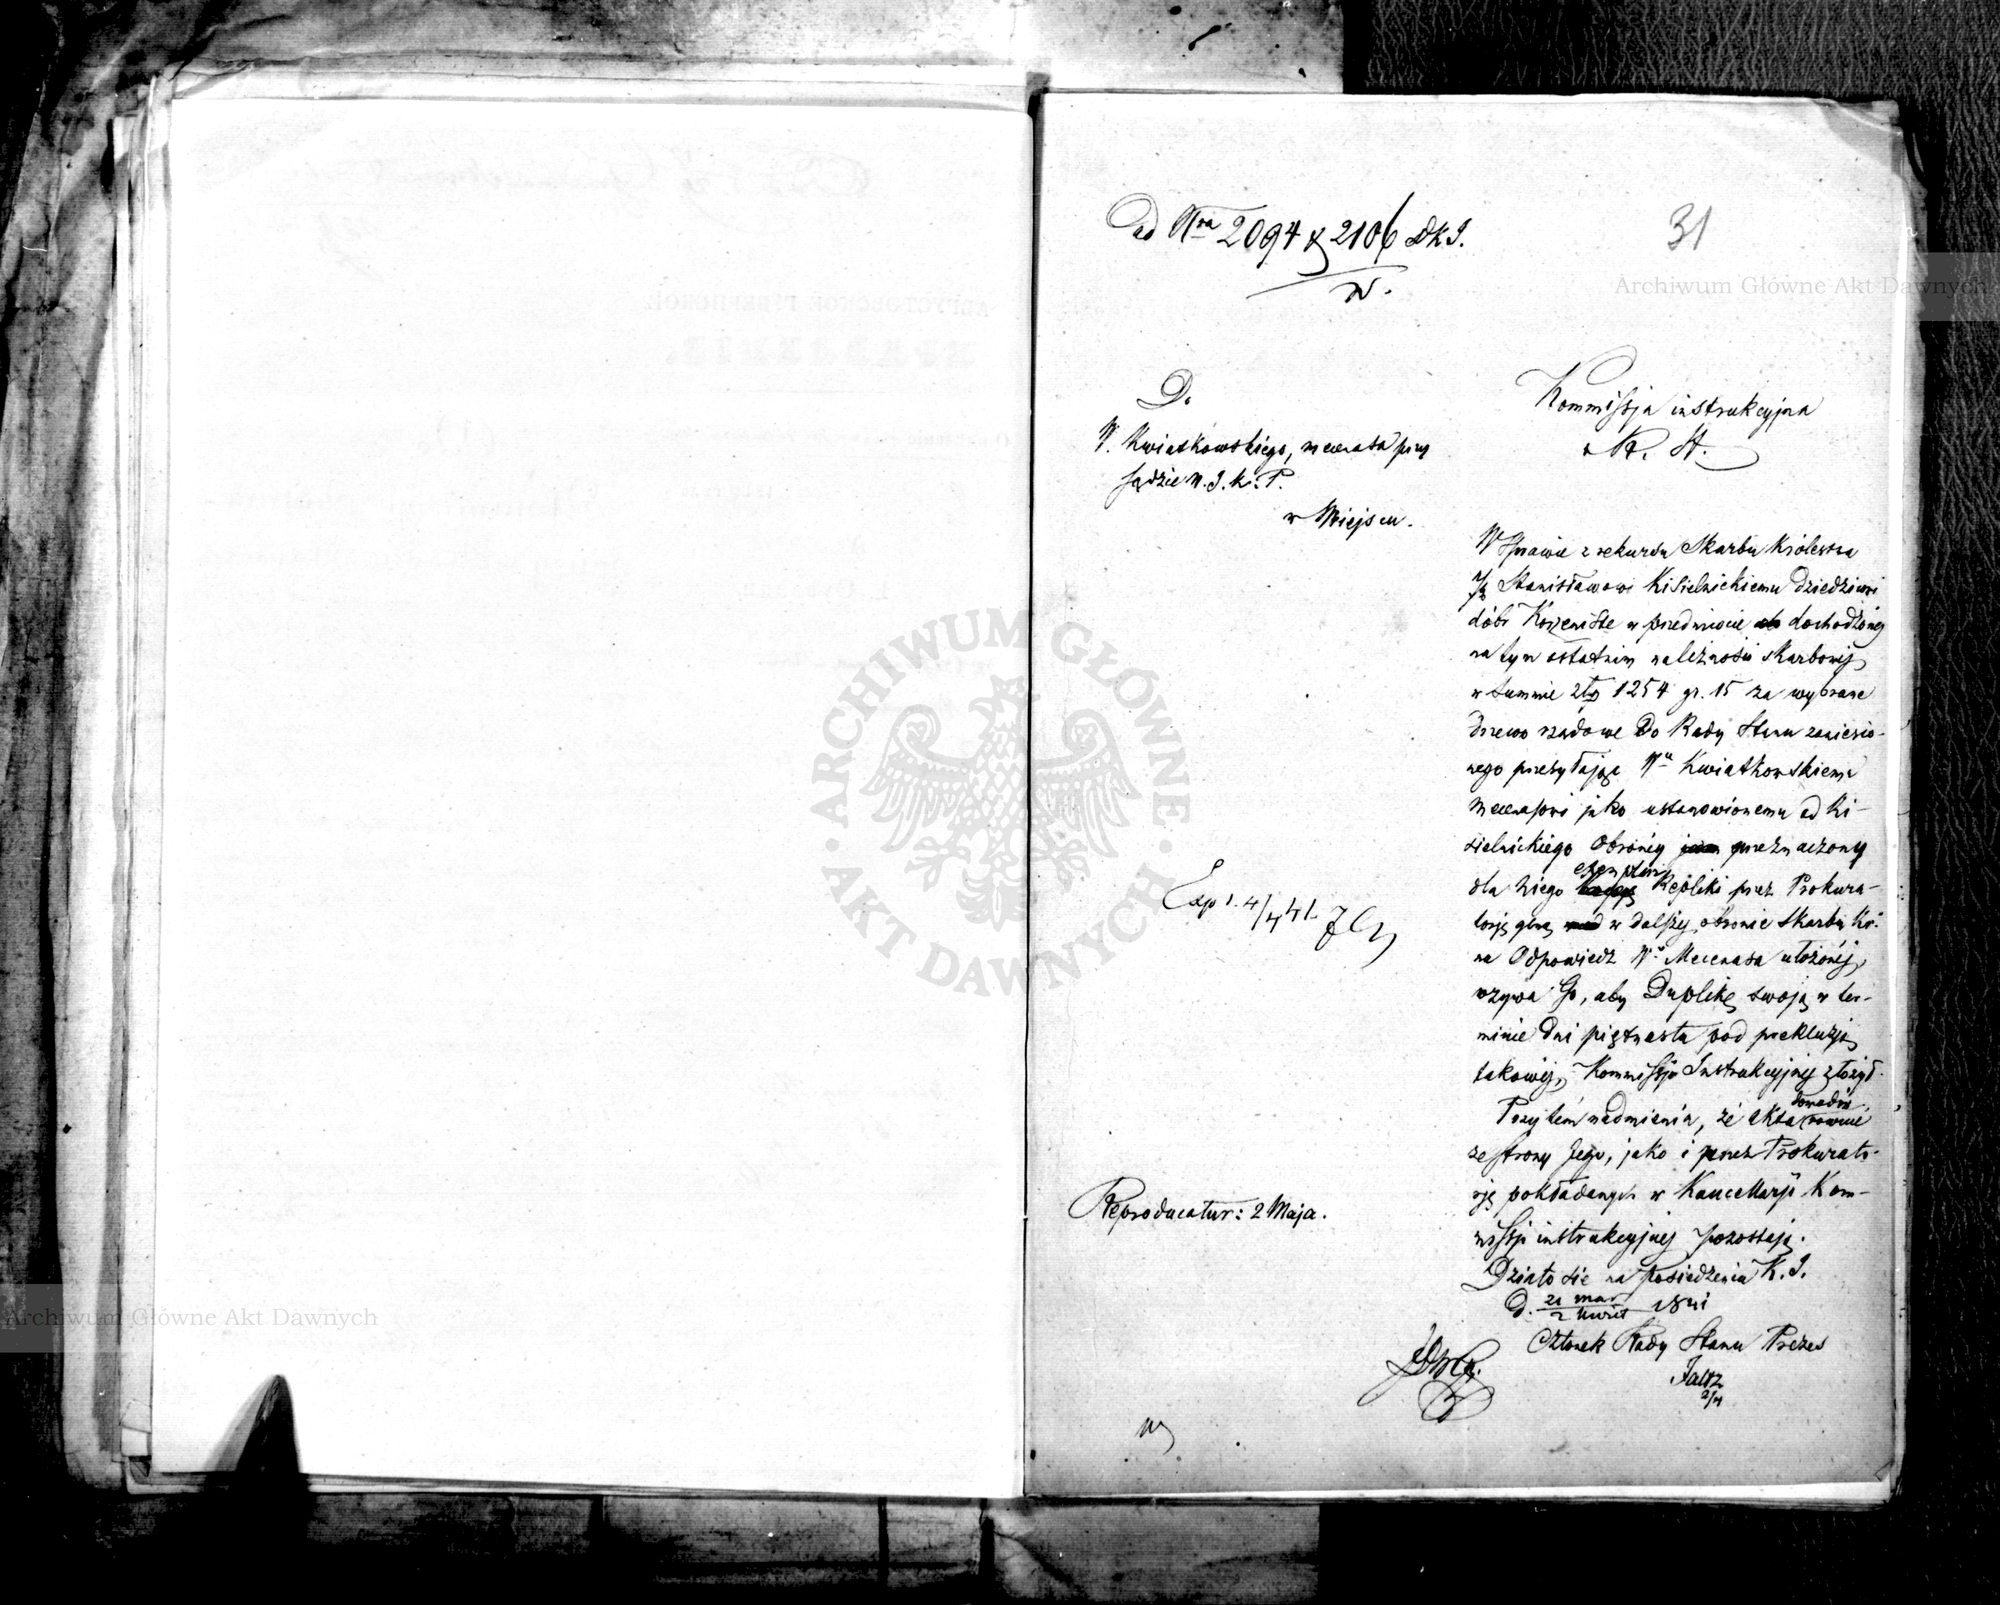 ad Nra 2094 & 2106 DKI.
31
Do
W. Kwiatkowskiego, mecenasa przy
Sądzie N. I. K. P.
w Miejscu.
Kommissja instrukcyjna
R. St.
W Sprawie z rekursu Skarbu Królestwa
Stanisławowi Kisielnickiemu dziedzicowi
dóbr Korzeniste w przedmiocie dochodzonej
na tym ostatnim należności Skarbowej
w summie złp 1254 gr. 15 za wybrane
drzewo rządowe Do Rady Stanu zaniesio-
nego przesyłając Wu Kwiatkowskiemu
Mecenasowi jako ustanowionemu od Ki-
sielnickiego Obrońcy przeznaczony
dla niego exemplarz Repliki przez Prokura-
torję w dalszej obronie Skarbu Kr.
na Odpowiedź Wo Mecenasa ułożonej,
wzywa Go, aby Duplikę swoją w ter-
minie dni piętnastu pod prekluzją
takowej, Kommissji Instrukcyjnej złożył.
Przytem nadmienia, że akta
ze strony Jego, jako i przez Prokurato-
rję pokładanych w Kancellarji Kom-
missji instrukcyjnej pozostają.
Działo się na posiedzeniu K. I.
d. 21 mar / 2 kwiet 1841
Członek Rady Stanu Prezes
2/4
Exp. 4/4 41.
Reproducatur: 2 Maja.
ARCHIWUM GŁÓWNE AKT DAWNYCH
Archiwum Główne Akt Dawnych
Archiwum Główne Akt Dawnych